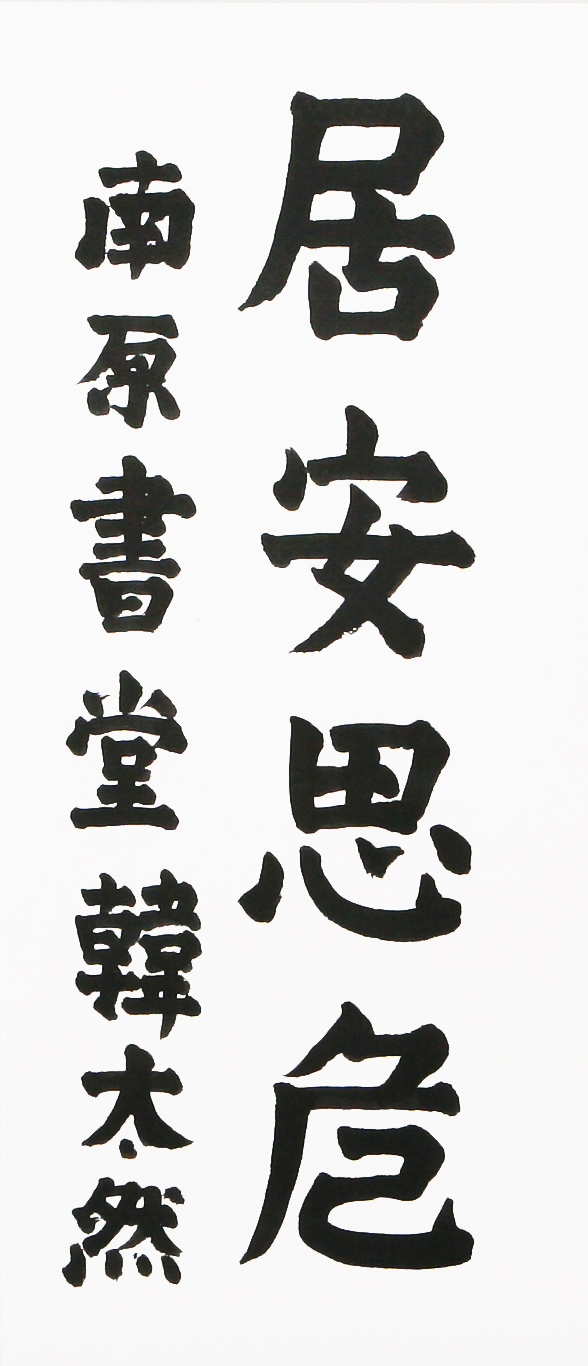 居安思危
南原書堂韓太然